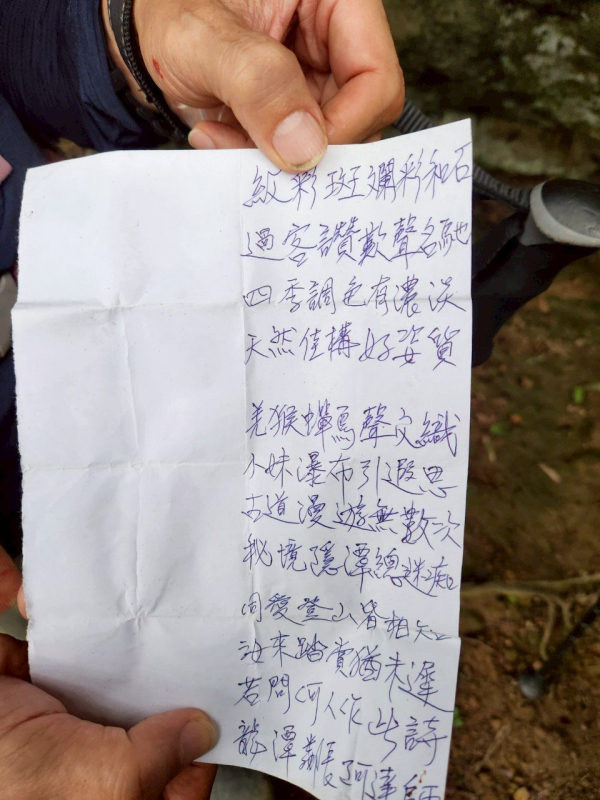 級彩斑斕彩和石
過客讚歎聲名馳
四季調色有濃淡
天然佳構好姿質
羌猴蟬鳥聲交織
小妹瀑布引遐思
古道漫遊無數次
秘境隱潭總迷痴
同愛登山皆相知
汝來踏賞猶未遲
若問何人作此詩
龍潭 阿達師